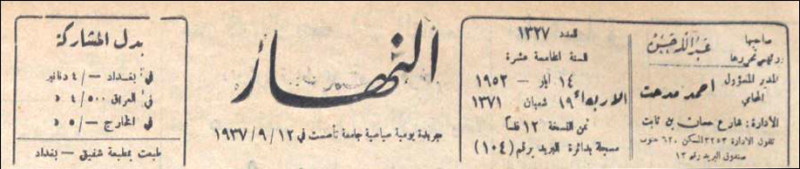 صاحبها
ورئيس تحريرها عبدالله حسن
المدير المسؤول
المحامي احمد مدحت
الادارة : شارع حسان بن ثابت
تلفون الادارة ٣٢٥٣ المسكن ٦٢٠ جنوب
صندوق البريد رقم ١٢
العدد ١٣٢٧
السنة الخامسة عشرة
١٤ أيار - ١٩٥٢
الاربعاء ١٩ شعبان ١٣٧١
ثمن النسخة ١٢ فلساً
مسجلة بدائرة البريد برقم (١٠٤)
النهار
جريدة يومية سياسية جامعة تأسست في ١٢/٩/١٩٣٧
بدل المشاركة
في بغداد -/٤ دنانير
في العراق ٤/٥٠٠ د
في الخارج -/٥ د
طبعت بمطبعة شفيق - بغداد